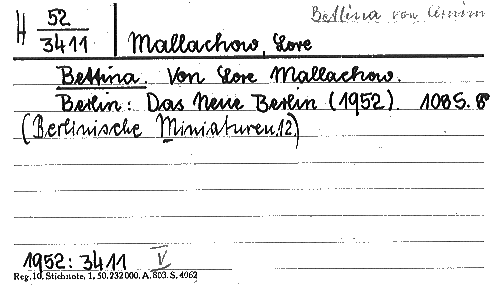 Bettina von Arnim
H 52
3411
Mallachow, Lore
Bettina. Von Lore Mallachow.
Berlin: Das Neue Berlin (1952). 108 S. 8°
(Berlinische Miniaturen.12.)
1952: 3411 V
Reg. 10. Stichnote, 1, 50. 232000. A. 803. S. 4962